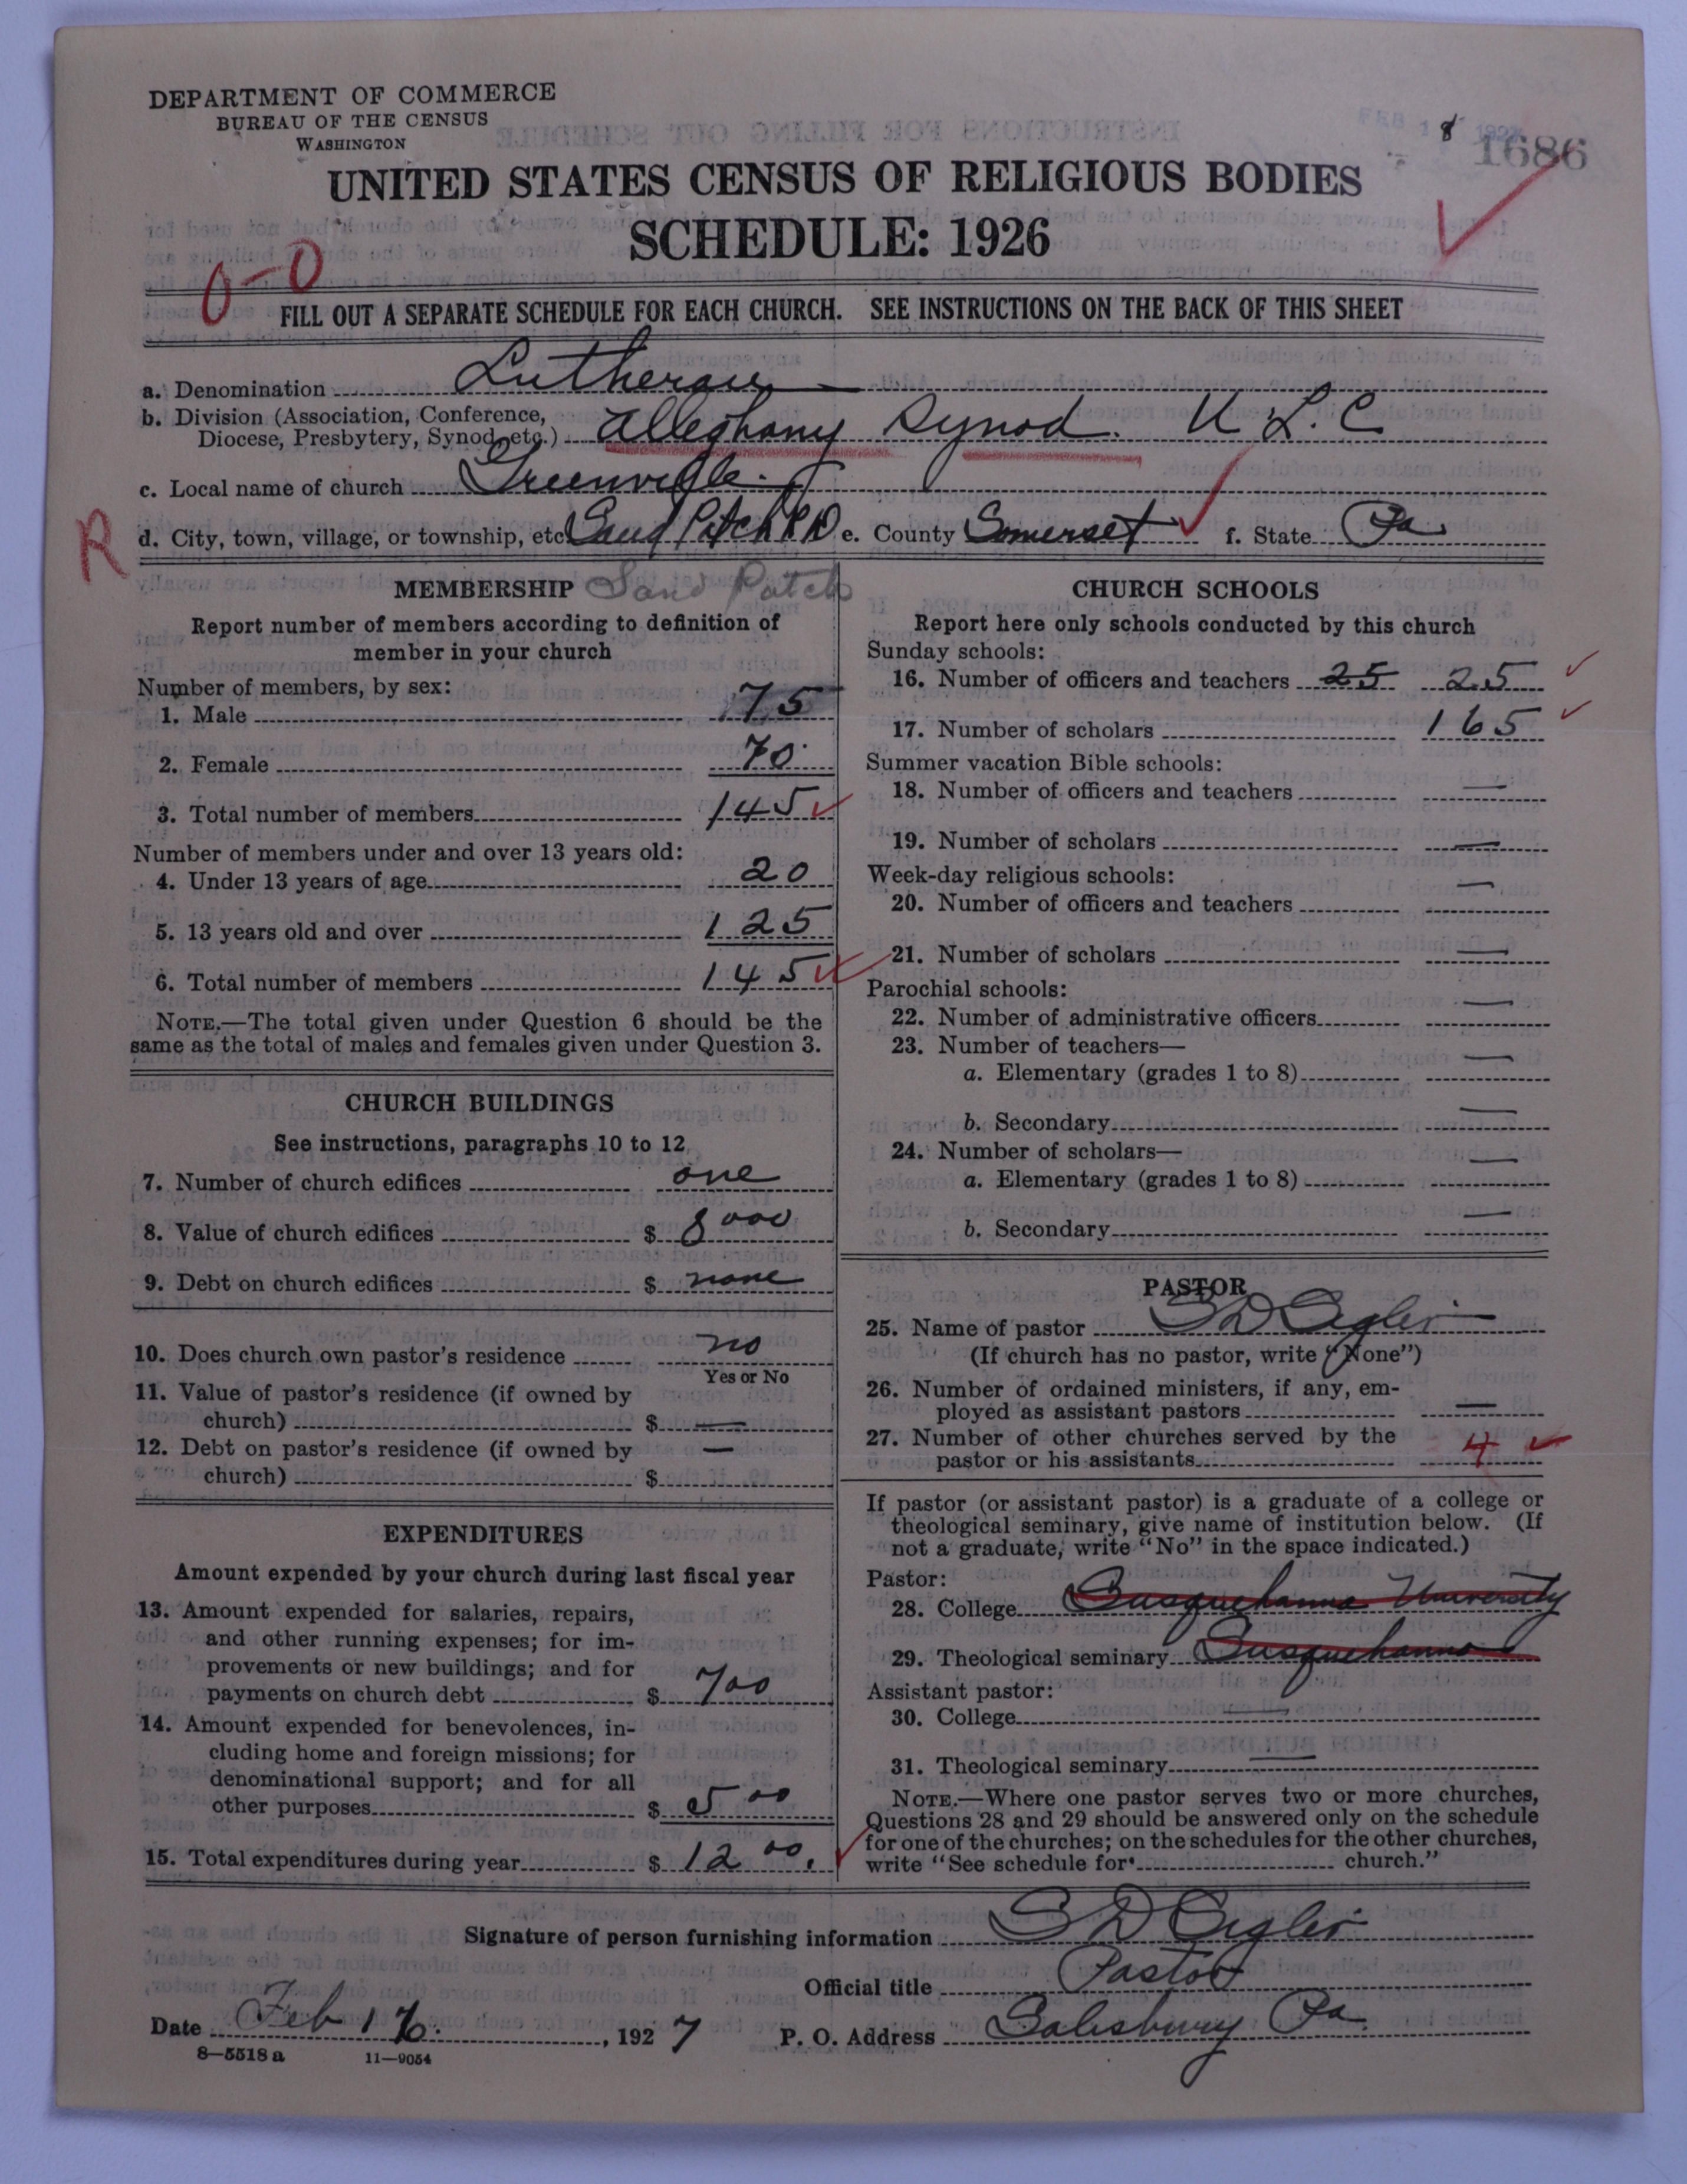 DEPARTMENT OF COMMERCE
BUREAU OF THE CENSUS
WASHINGTON
FEB 18 192
1686
UNITED STATES CENSUS OF RELIGIOUS BODIES
SCHEDULE: 1926
0-0
FILL OUT A SEPARATE SCHEDULE FOR EACH CHURCH. SEE INSTRUCTIONS ON THE BACK OF THIS SHEET
a. Denomination Lutheran
b. Division (Association, Conference,
Diocese, Presbytery, Synod, etc.) Alleghany Synod. U L. C
c. Local name of church Greenville.
R
d. City, town, village, or township, etc. Sand Patch R D e. County Somerset f. State Pa
MEMBERSHIP Sand Patch
Report number of members according to definition of
member in your church
Number of members, by sex:
1. Male 75
2. Female 70
3. Total number of members 145
Number of members under and over 13 years old:
4. Under 13 years of age 20
5. 13 years old and over 125
6. Total number of members 145
NOTE.—The total given under Question 6 should be the
same as the total of males and females given under Question 3.
CHURCH BUILDINGS
See instructions, paragraphs 10 to 12
7. Number of church edifices one
8. Value of church edifices $ 8000
9. Debt on church edifices $ none
10. Does church own pastor's residence no
Yes or No
11. Value of pastor's residence (if owned by
church) $ —
12. Debt on pastor's residence (if owned by
church) $ —
EXPENDITURES
Amount expended by your church during last fiscal year
13. Amount expended for salaries, repairs,
and other running expenses; for im-
provements or new buildings; and for
payments on church debt $ 700
14. Amount expended for benevolences, in-
cluding home and foreign missions; for
denominational support; and for all
other purposes $ 500
15. Total expenditures during year $ 1200.
CHURCH SCHOOLS
Report here only schools conducted by this church
Sunday schools:
16. Number of officers and teachers 25 25
17. Number of scholars 165
Summer vacation Bible schools:
18. Number of officers and teachers —
19. Number of scholars —
Week-day religious schools:
20. Number of officers and teachers —
21. Number of scholars —
Parochial schools:
22. Number of administrative officers —
23. Number of teachers—
a. Elementary (grades 1 to 8) —
b. Secondary —
24. Number of scholars—
a. Elementary (grades 1 to 8) —
b. Secondary —
PASTOR
25. Name of pastor S D Sigler
(If church has no pastor, write "None")
26. Number of ordained ministers, if any, em-
ployed as assistant pastors —
27. Number of other churches served by the
pastor or his assistants 4
If pastor (or assistant pastor) is a graduate of a college or
theological seminary, give name of institution below. (If
not a graduate, write "No" in the space indicated.)
Pastor:
28. College Susquehanna University
29. Theological seminary Susquehanna
Assistant pastor:
30. College —
31. Theological seminary —
NOTE.—Where one pastor serves two or more churches,
Questions 28 and 29 should be answered only on the schedule
for one of the churches; on the schedules for the other churches,
write "See schedule for church."
Signature of person furnishing information S D Sigler
Official title Pastor
Date Feb 16. , 1927 P. O. Address Salisbury Pa.
8—5518 a 11—9054